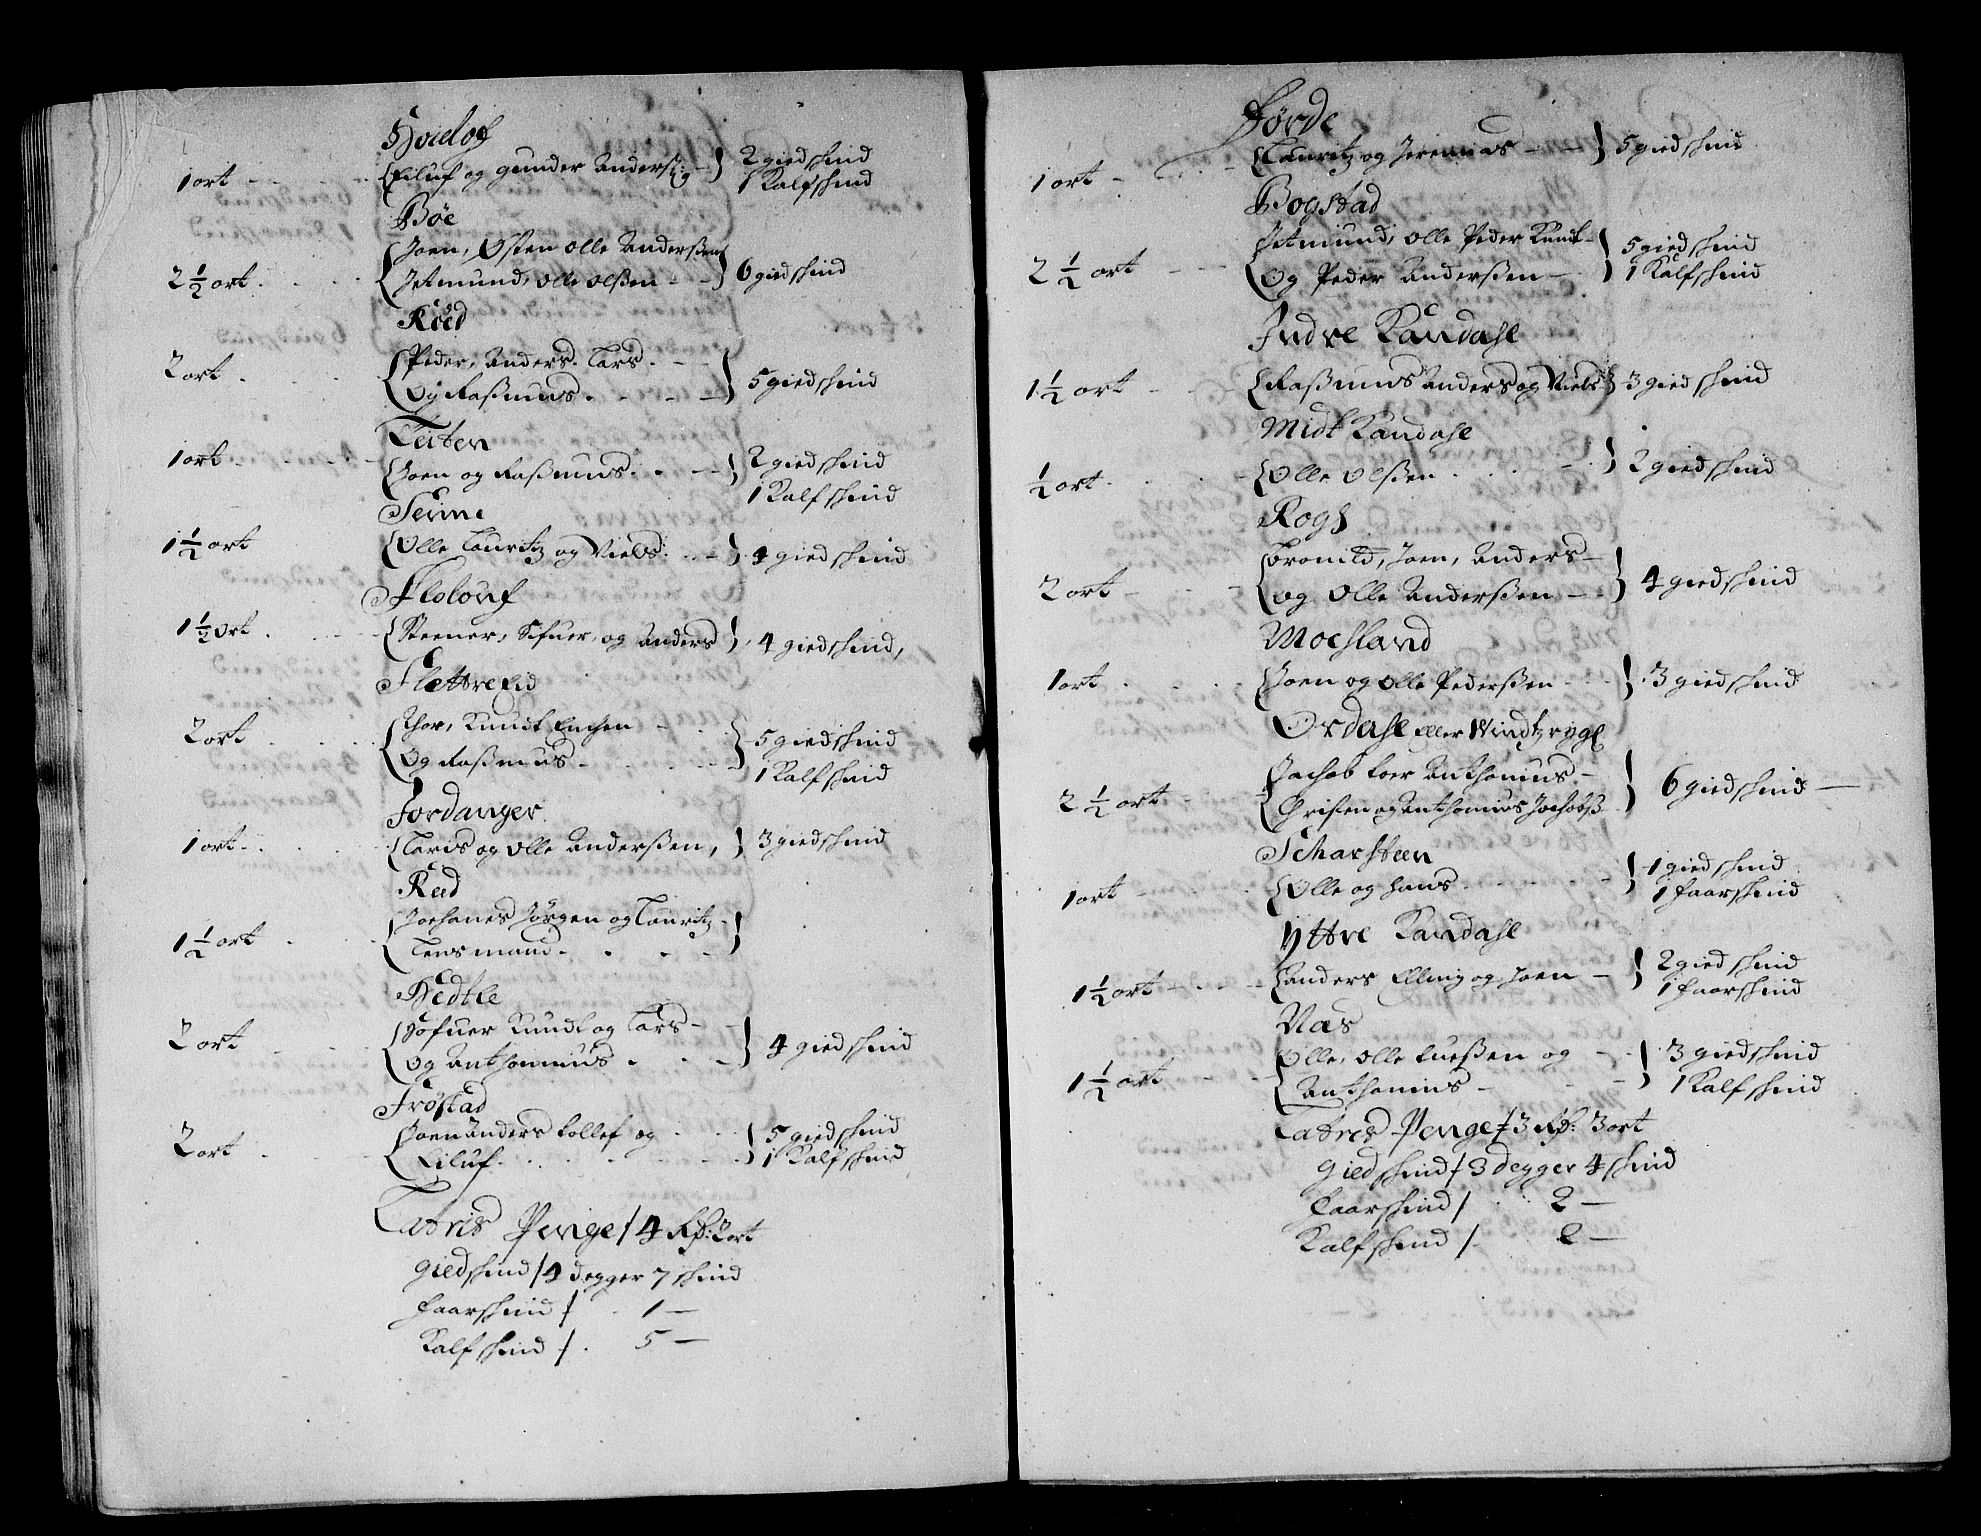 1 ort
{Eiluf og gunder Anderß:
2 giedschind
1 Kalfschind
Bøe
2 1/2 ort
{Joen, Østen olle Anderßen
{Jetmund, olle olßen
6 giedschind
Røed
2 ort
{Peder, Anders. Lars.
{og Raßmus
5 giedschind
Leiten
1 ort
{Joen og Raßmus
2 giedschind
1 Kalfschind
1 1/2 ort
{Olle Lauritz og Niels
4 giedschind
1 1/2 ort
{Steener, Sifuer, og Anders
4 giedschind,
Slettreeid
2 ort
{Thor, Knudt
{og Raßmus
5 giedschind
1 Kalfschind
Jordanger
1 ort
{Laris og olle Anderßen,
3 giedschind
1 1/2 ort
{Johanes Jörgen og Lauritz
{Lensmand
Hedtle
2 ort
{Sefuer Knudt og Lars
{og Anthonnius
4 giedschind
Frøstad
2 ort
{Joen Anders tollef og
{Eiluf
5 giedschind
1 Kalfschind
Latris Penge / 4 Rß: 2 ort
giedschind / 4 degger 7 schind
faarschind / 1 —
Kalfschind / 5 —
Førde
1 ort
{Lauritz og Jeremias
5 giedschind
Bogstad
2 1/2 ort
{Jetmund, olle Peder Knudt
{og Peder Anderßen
5 giedschind
1 Kalfschind
Indre Kandahl
1 1/2 ort
{Raßmus Anders og Niels
3 giedschind
Midt Kandahl
1/2 ort
{Olle olßen
2 giedschind
2 ort
{Joen, Anders
{og Olle Anderßen
4 giedschind
Mochland
1 ort
{Joen og Olle Pederßen
3 giedschind
Ørdahl eller
2 1/2 ort
{Jachob Anthonius
{Christen og Anthonius Jachobß
6 giedschind —
Scharsteen
1 ort
{Olle og Hans
1 giedschind
1 faarschind
Yttre Kandahl
1 1/2 ort
{Anders Elling og Joen
2 giedschind
1 faarschind
Næs
1 1/2 ort
{Olle, olle og
{Anthonius
3 giedschind
1 Kalfschind
Latris Penge / 3 Rß: 3 ort
giedschind / 3 degger 4 schind
faarschind / 2 —
Kalfschind / 2 —